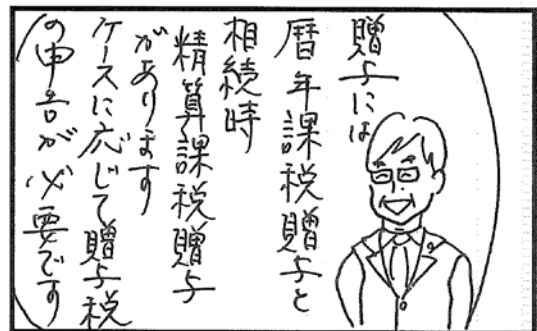 贈与には
暦年課税贈与と
相続時
精算課税贈与
があります
ケースに応じて贈与税
の申告が必要です